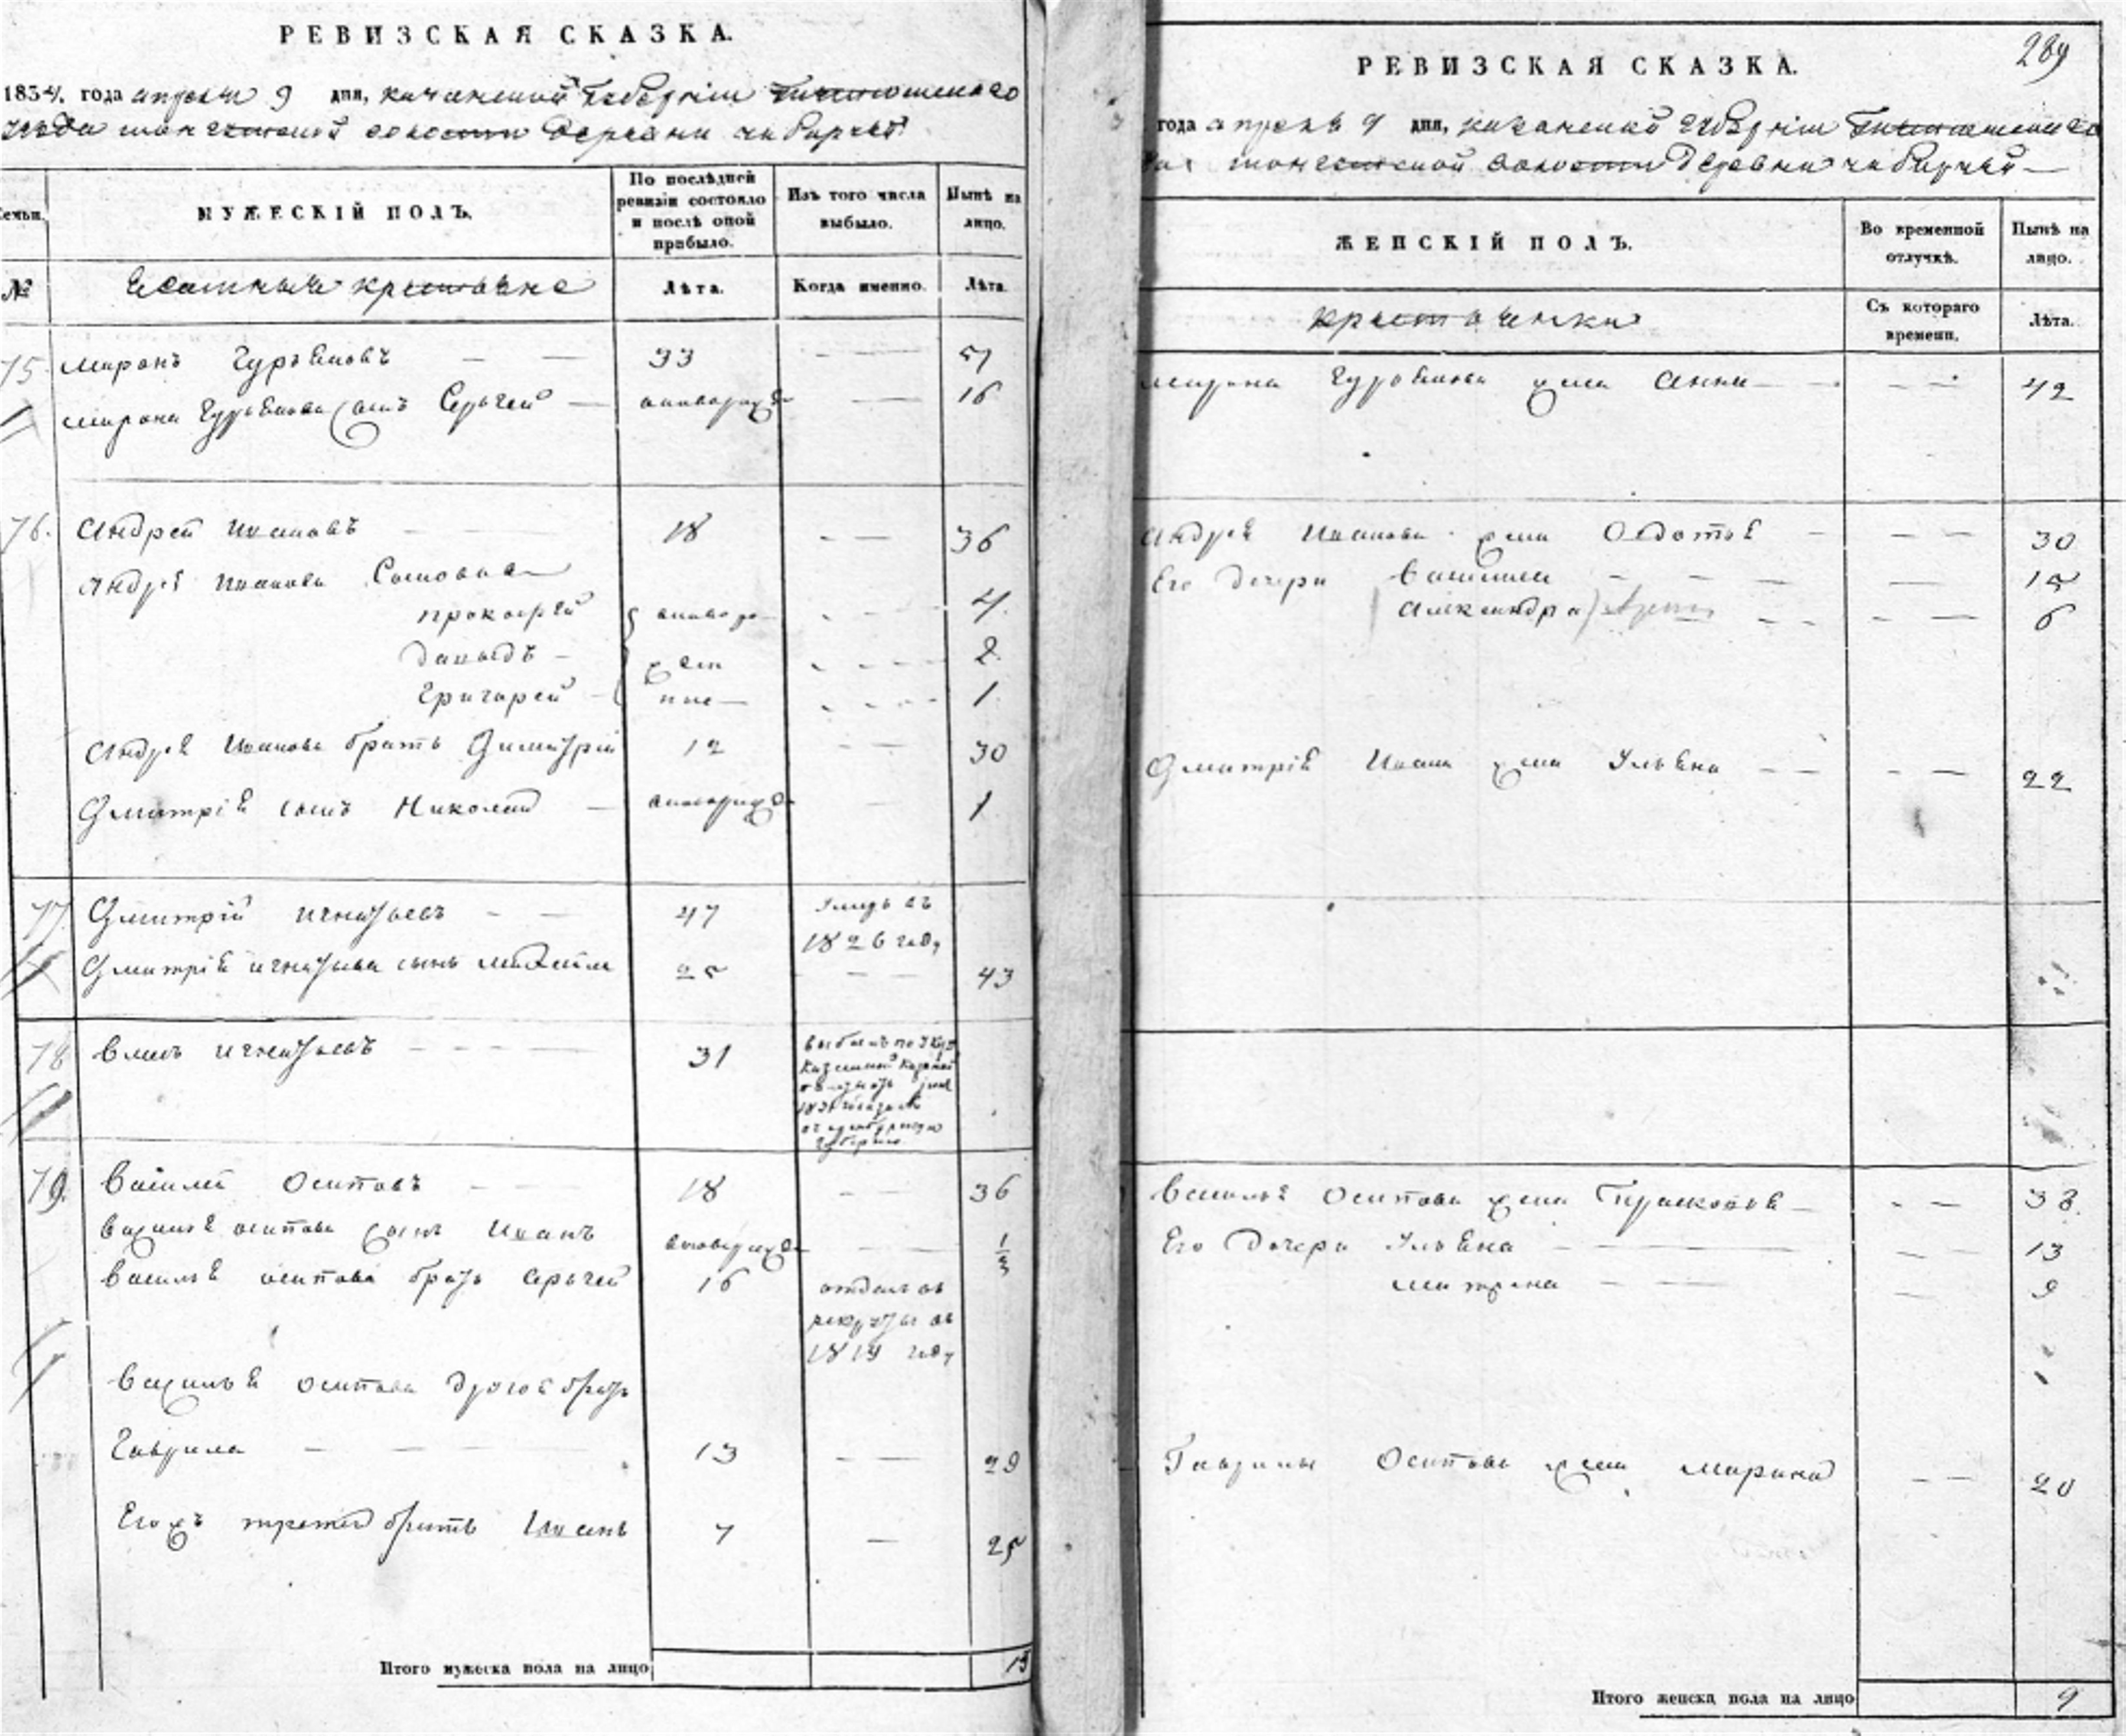 РЕВИЗСКАЯ СКАЗКА.
1834. года апреля 9 дня, казанской губернии
волости деревни
Семьи.
МУЖЕСКІЙ ПОЛЪ.
По послѣдней ревизіи состояло и послѣ оной прибыло.
Изъ того числа выбыло.
Нынѣ на лицо.
№
Ясашныя крестьяне
Лѣта.
Когда именно.
Лѣта.
75. Миронъ Гурьяновъ — — 33 — — 51
Мирона Гурьянова сынъ Сергей — новорожде — 16
76. Андрей Ивановъ — — 18 - — — 36
Андрея Иванова Сыновья
прокофей новоро — 4.
давыдъ — жден — 2.
Григорей — ные — 1
Андрея Иванова братъ Димитрій 12 — — 30
Дмитрія сынъ Николай — новорожде — 1
77 Дмитрій игнатьевъ — — 47 Умеръ въ
1826 году
Дмитрія игнатьева сынъ Михайла 25 — — 43
78 игнатьевъ — — — 31 выбылъ по
Казенной
губернію
79. Василей Осиповъ — — 18 — — 36
Василья осипова сынъ Иванъ новорожде — — 1/3
Василья осипова братъ Сергей 16 отданъ въ
рекруты въ
1819 году
Василья Осипова другой братъ
Гаврила — — — 13 — — 29
Егожъ третей братъ Иванъ 7 — 25
Итого мужеска пола на лицо 13
289
РЕВИЗСКАЯ СКАЗКА.
года апреля 9 дня, казанской губерніи
волости деревни
ЖЕНСКІЙ ПОЛЪ.
Во временной отлучкѣ.
Нынѣ на лицо.
крестьянки
Съ котораго времени.
Лѣта.
Мирона Гурьянова жена Анна — — — 42
Андрея Иванова жена Федотья — — — 30
Его дочери Василиса — — — 15
Александра — — 6
Дмитрія Ивана жена Ульяна — — — — 22
Василья Осипова жена Прасковья — - — 38.
Его Дочери Ульяна — — — 13
Матрена — — — 9
Гаврилы Осипова жена Марина — — 20
Итого женска пола на лицо 9